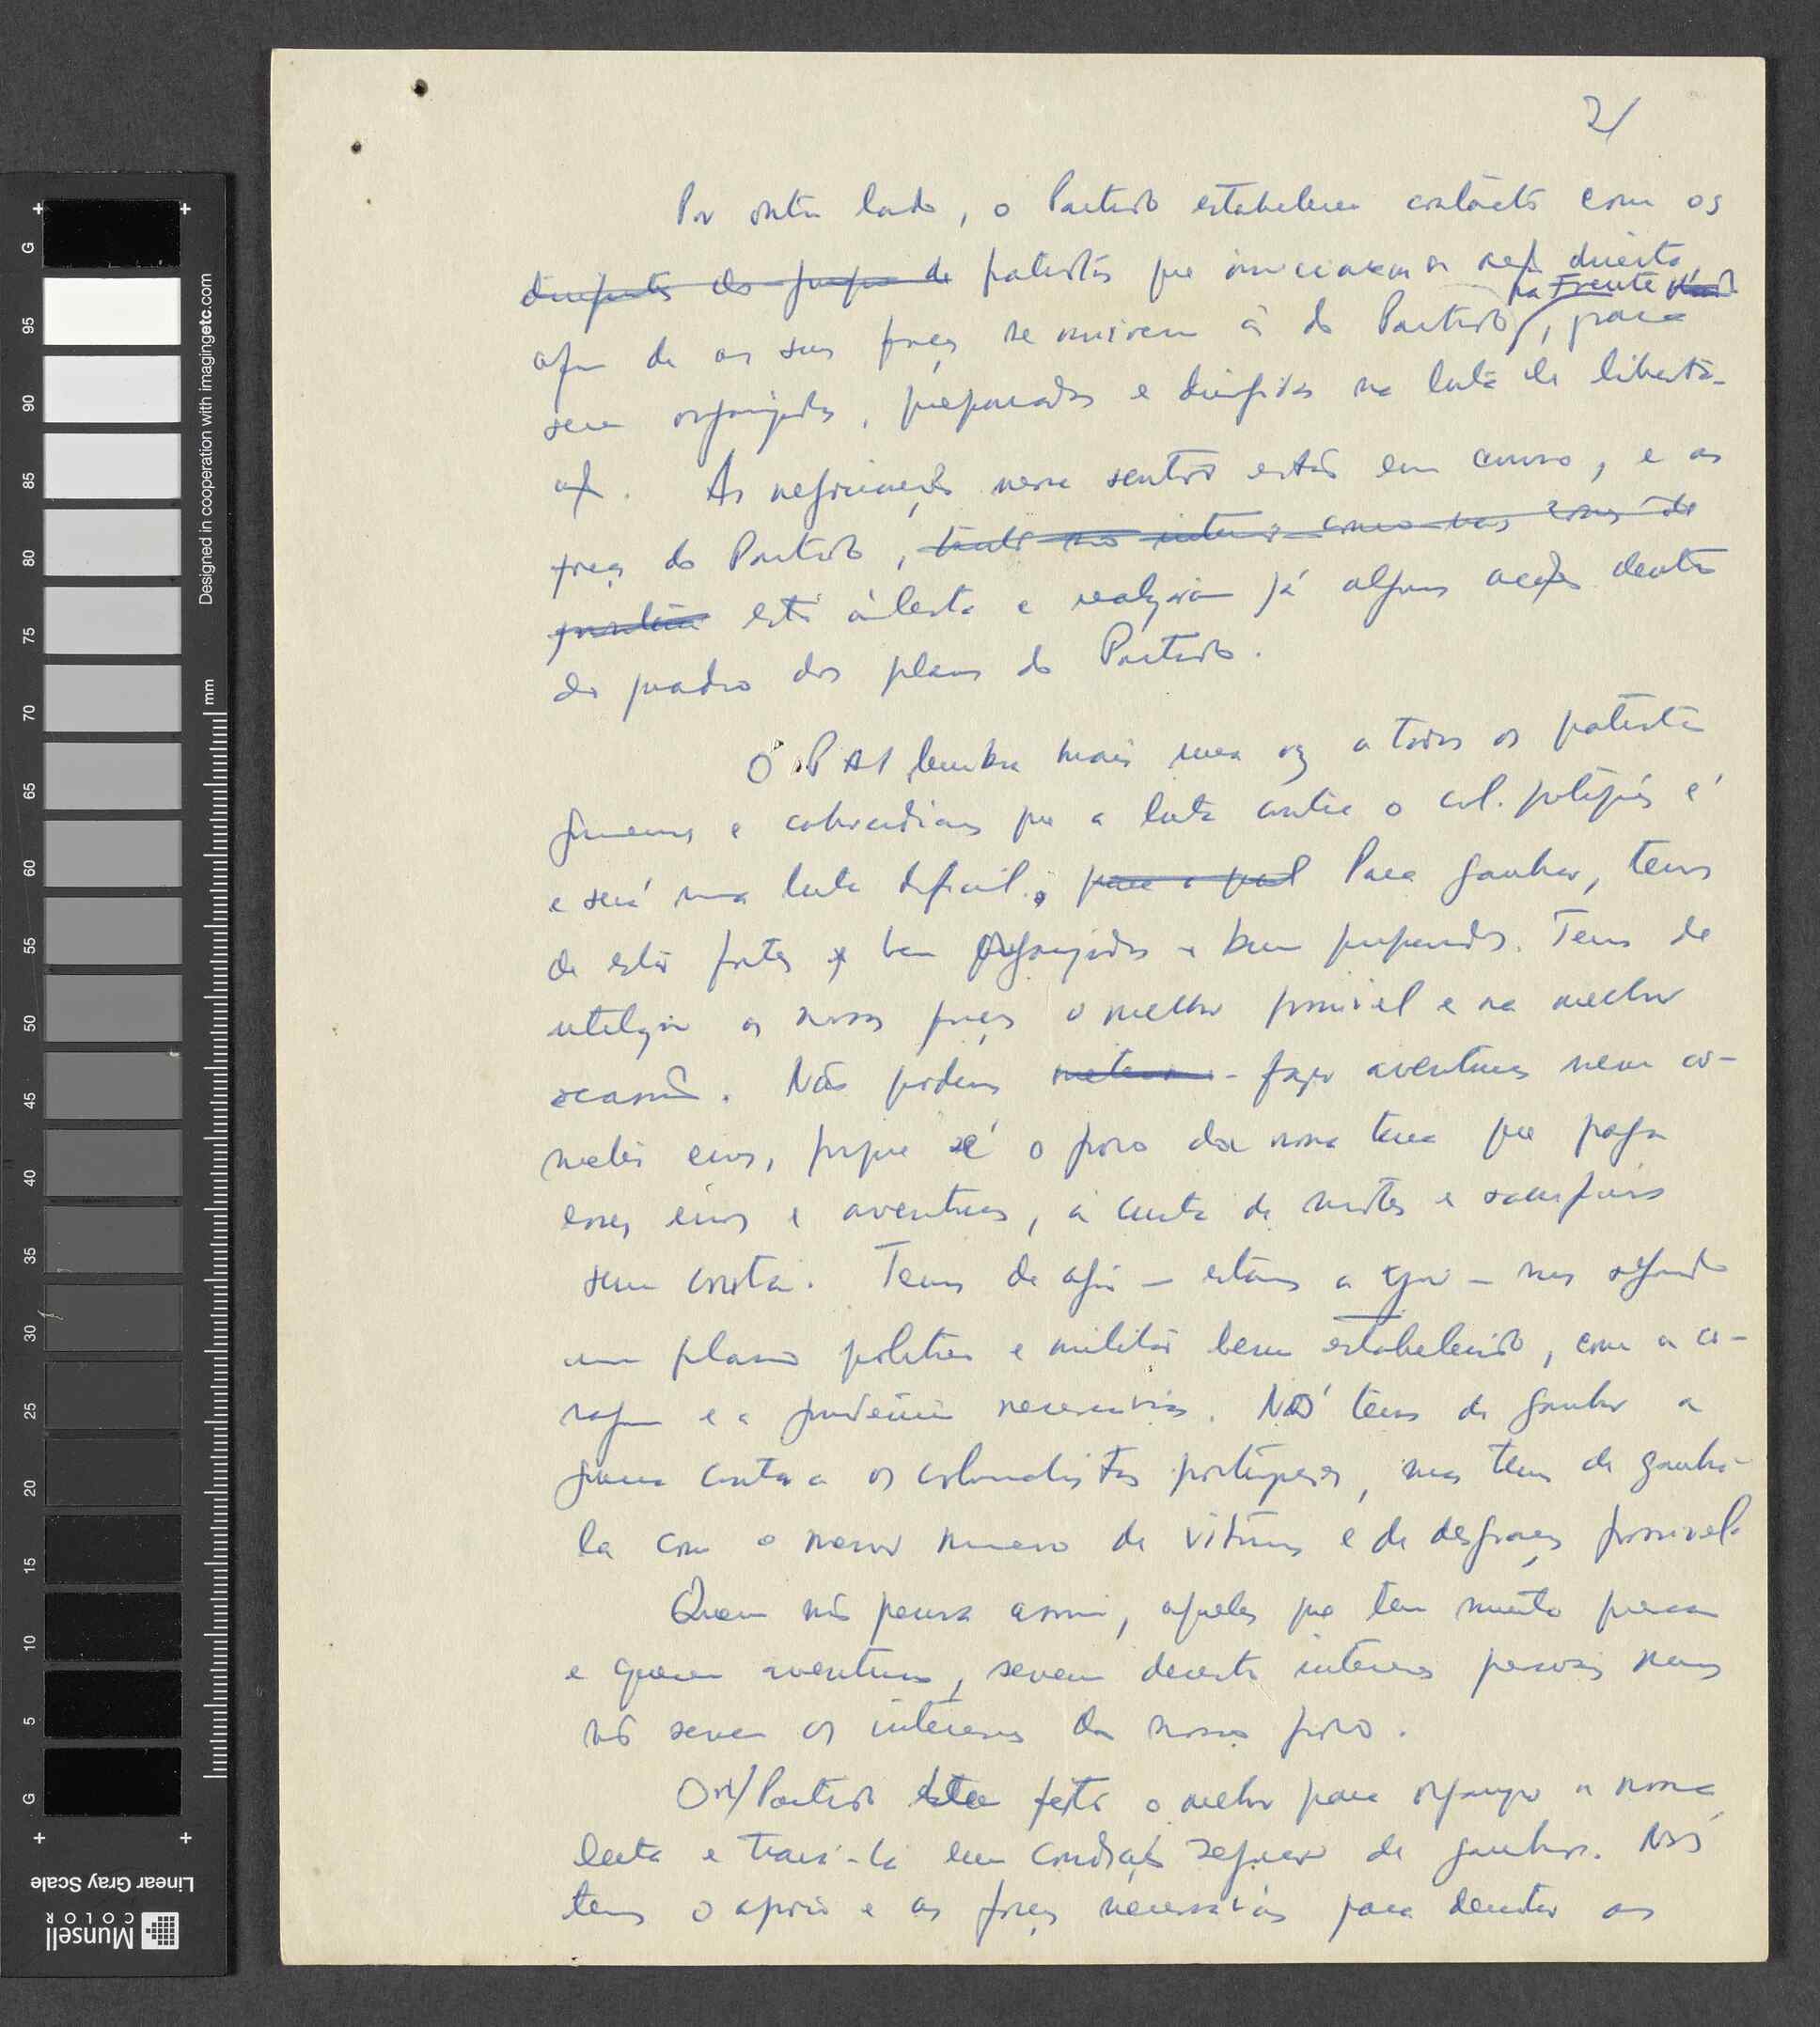 2/
Por outro lado, o Partido estabeleceu contacto com os
dirigentes do grupo de patriotas que iniciaram a acção directa,
na Frente
afim de as suas forças se unirem às do Partido, para
serem organizadas, preparadas e dirigidas na luta de liberta-
ção. As negociações nesse sentido estão em curso, e as
forças do Partido, tanto no interior como nas zonas de
fronteira estão àlerta e realizaram já algumas acções dentro
do quadro dos planos do Partido.
O PAI lembra mais uma vez a todos os patriotas
guineenses e caboverdianos que a luta contra o col. português é
e será uma luta difícil. para a qual Para ganhar, temos
de estar fortes bem organizados e bem preparados. Temos de
utilizar as nossas forças o melhor possível e na melhor
ocasião. Não podemos fazer aventuras nem co-
meter erros, porque é o povo da nossa terra que paga
esses erros e aventuras, à custa de mortes e sacrifícios
sem conta. Temos de agir — estamos a agir — mas segundo
um plano político e militar bem estabelecido, com a co-
ragem e a prudência necessárias. Nós temos de ganhar a
guerra contra os colonialistas portugueses, mas temos de ganhá-
la com o menor número de vítimas e de desgraças possível.
Quem não pensa assim, aqueles que têm muita pressa
e querem aventuras, servem decerto interesses pessoais mas
não servem os interesses do nosso povo.
O n/ Partido está feito o melhor para organizar a nossa
luta e travá-la em condições seguras de ganhar. Nós
temos o apoio e as forças necessárias para derrotar os
Designed in cooperation with imagingetc.com
mm
G
95
90
85
80
75
70
65
60
55
50
45
40
35
30
25
20
15
10
5
G
Linear Gray Scale
Munsell
COLOR